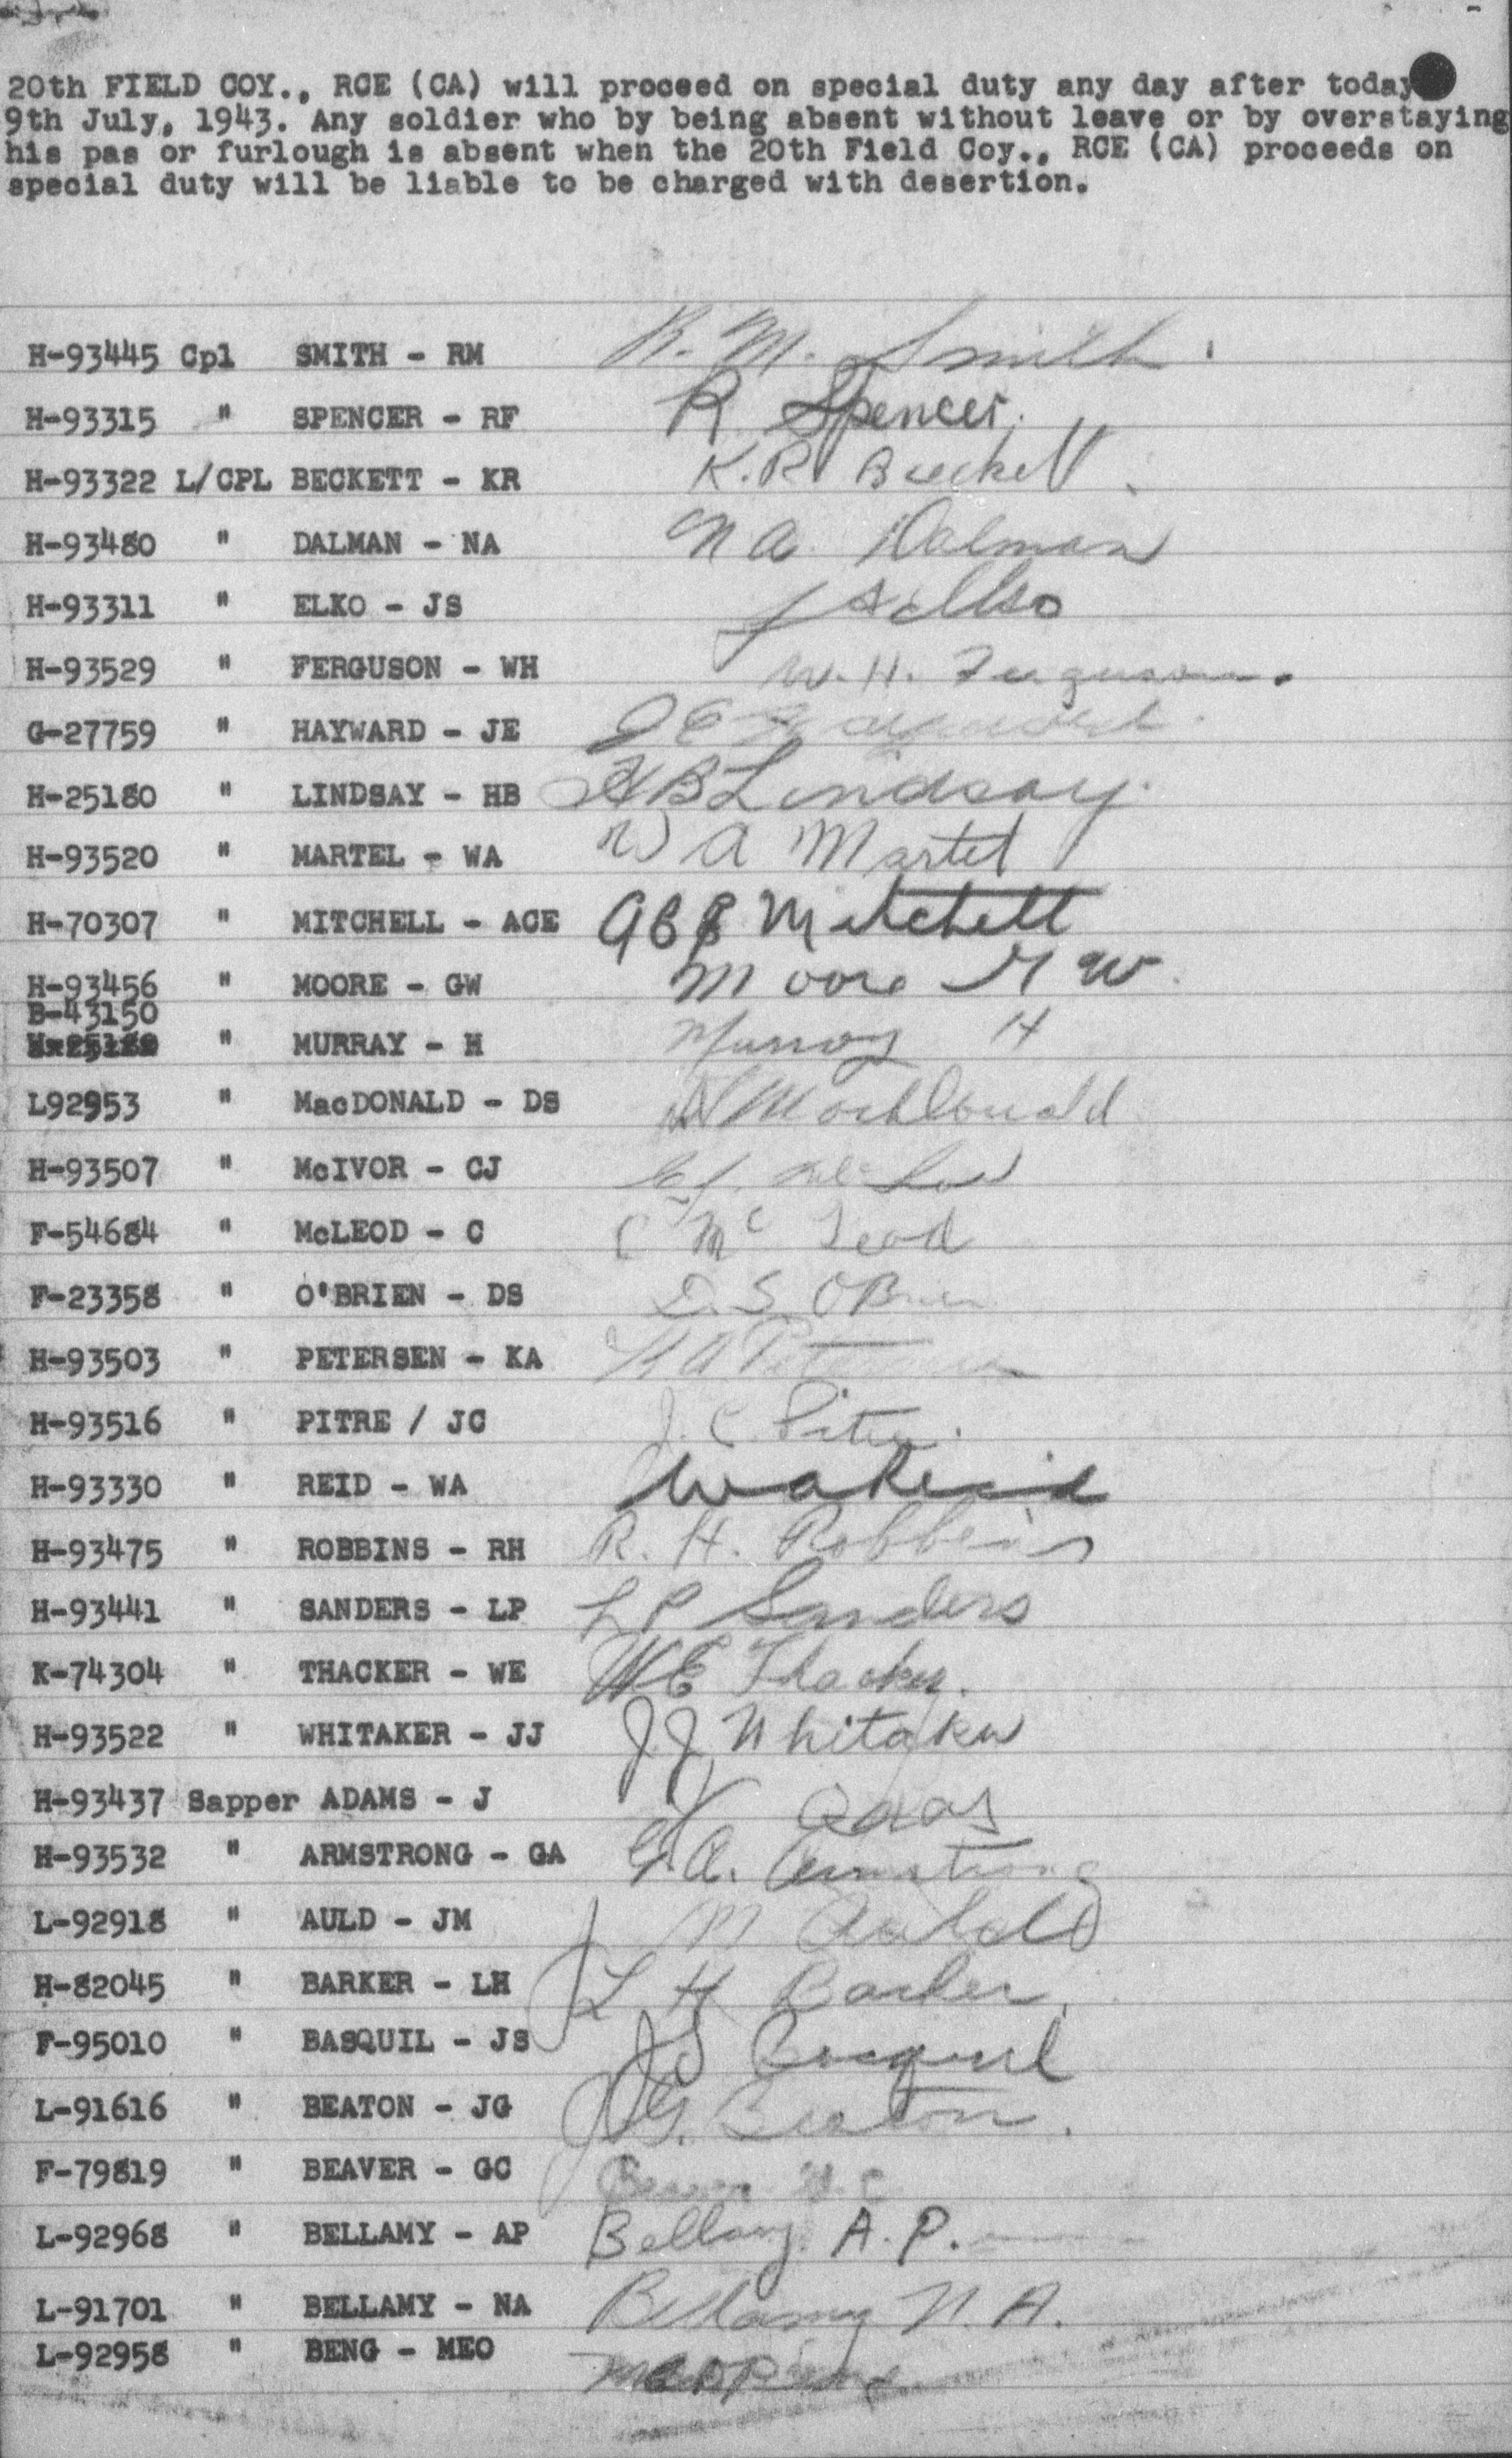 20th FIELD COY., RCE (CA) will proceed on special duty any day after today
9th July, 1943. Any soldier who by being absent without leave or by overstaying
his pas or furlough is absent when the 20th Field Coy., RCE (CA) proceeds on
special duty will be liable to be charged with desertion.
H-93445 Cpl SMITH - RM R. M. Smith
H-93315 " SPENCER - RF R Spencer.
H-93322 L/CPL BECKETT - KR K.R Beckett
H-93480 " DALMAN - NA N A. Dalman
H-93311 " ELKO - JS J S Elko
H-93529 " FERGUSON - WH W. H. Ferguson.
G-27759 " HAYWARD - JE J E Hayward.
H-25180 " LINDSAY - HB H B Lindsay.
H-93520 " MARTEL - WA W A Martel
H-70307 " MITCHELL - ACE Mitchell
H-93456 " MOORE - GW Moore G W.
B-43150
" MURRAY - H Murray H
L92953 " MacDONALD - DS MacDonald
H-93507 " McIVOR - CJ C J.
F-54684 " McLEOD - C C Mc Leod
F-23358 " O'BRIEN - DS D. S. O'Brien
H-93503 " PETERSEN - KA K A Petersen
H-93516 " PITRE / JC J. C. Pitre.
H-93330 " REID - WA W A Reid
H-93475 " ROBBINS - RH R. H. Robbins
H-93441 " SANDERS - LP L P Sanders
K-74304 " THACKER - WE W E Thacker.
H-93522 " WHITAKER - JJ J. J. Whitaker
H-93437 Sapper ADAMS - J J
H-93532 " ARMSTRONG - GA G. A. Armstrong
L-92918 " AULD - JM J M Auld
H-82045 " BARKER - LH L H Barker.
F-95010 " BASQUIL - JS J S Basquil
L-91616 " BEATON - JG J G. Beaton.
F-79819 " BEAVER - GC Beaver G. C
L-92968 " BELLAMY - AP Bellamy A. P.
L-91701 " BELLAMY - NA Bellamy N. A.
L-92958 " BENG - MEO